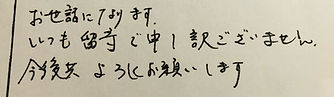 お世話になります.
いつも留守で申し訳ございません.
今後共 よろしくお願いします